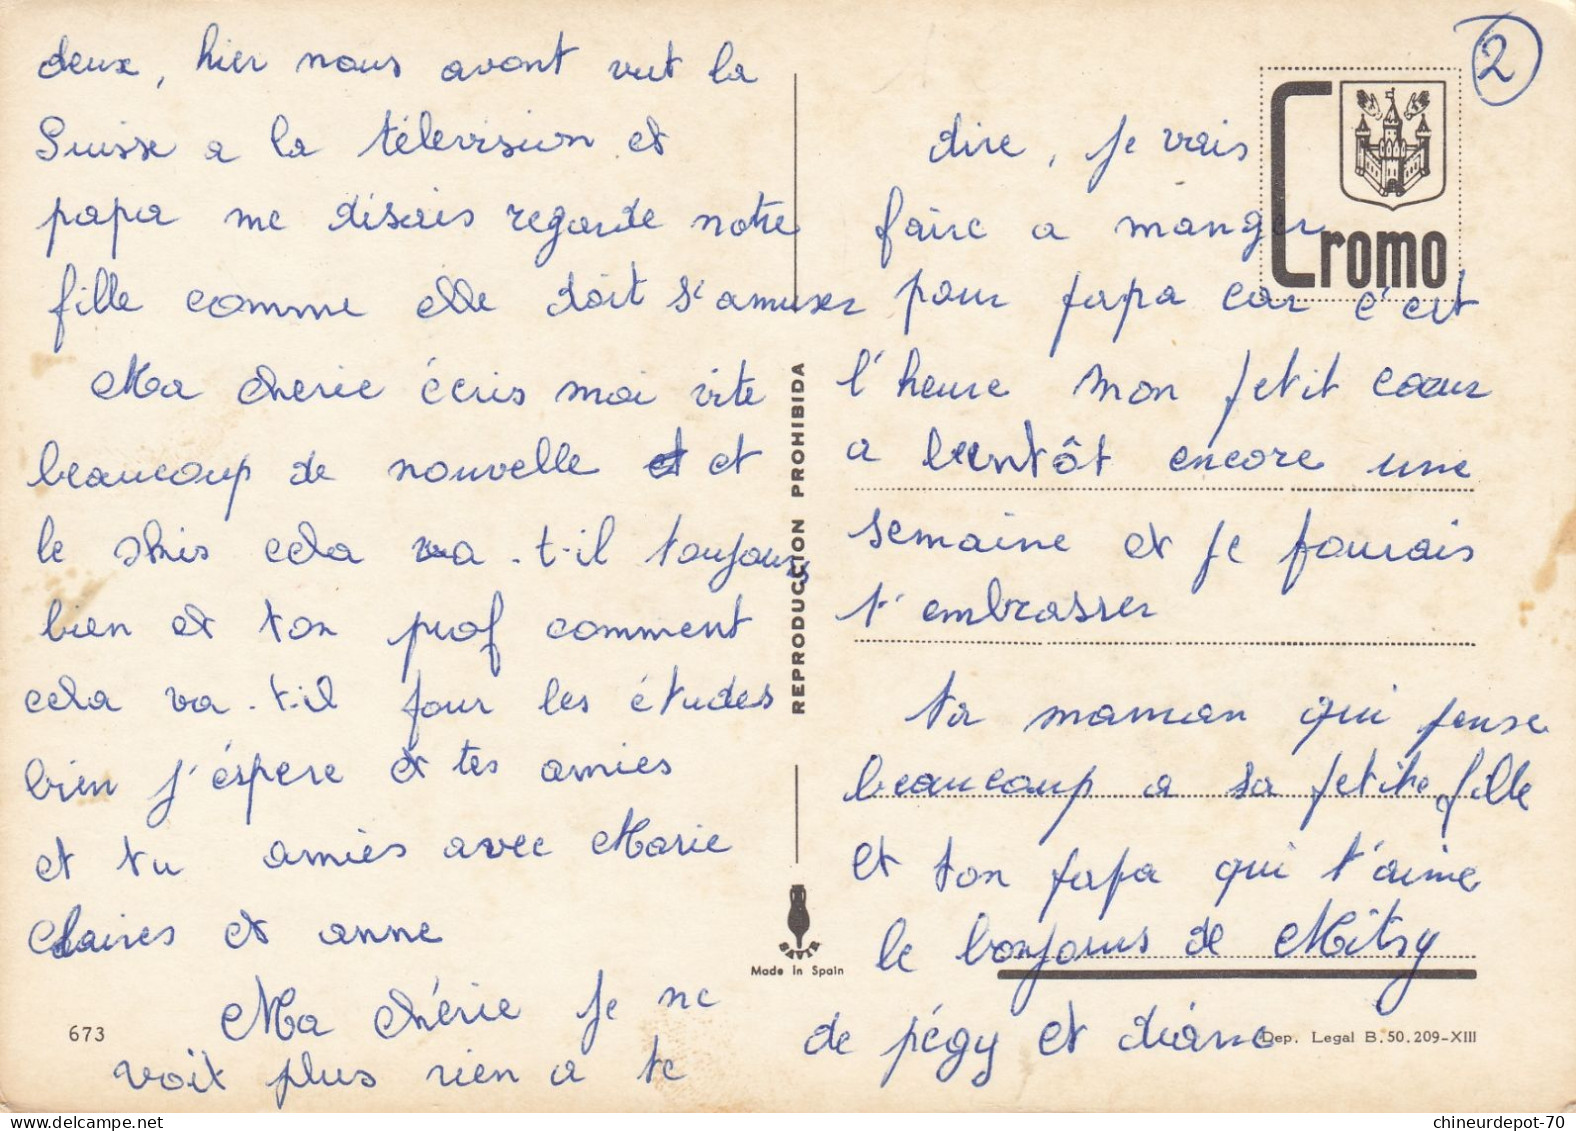 deux, hier nous avont vut la
Suisse a la télevision et
papa me disais regarde notre
fille comme elle doit s'amuser
Ma cherie écris moi vite
beaucoup de nouvelle et et
le skis cela va-t-il toujours
bien et ton prof comment
cela va-t-il pour les études
bien j'éspere et tes amies
et tu amies avec Marie
Claires et anne
Ma chérie je ne
voit plus rien a te
673
REPRODUCCION PROHIBIDA
SAVIR
Made in Spain
2
Cromo
dire, je vais
faire a manger
pour papa car c'est
l'heure Mon petit coeur
a bientôt encore une
semaine et je pourais
t'embrasser
ta maman qui pense
beaucoup a sa petite fille
et ton papa qui t'aime
le bonjours de Mitsy
de pégy et diane
Dep. Legal B. 50.209-XIII
chineurdepot-70